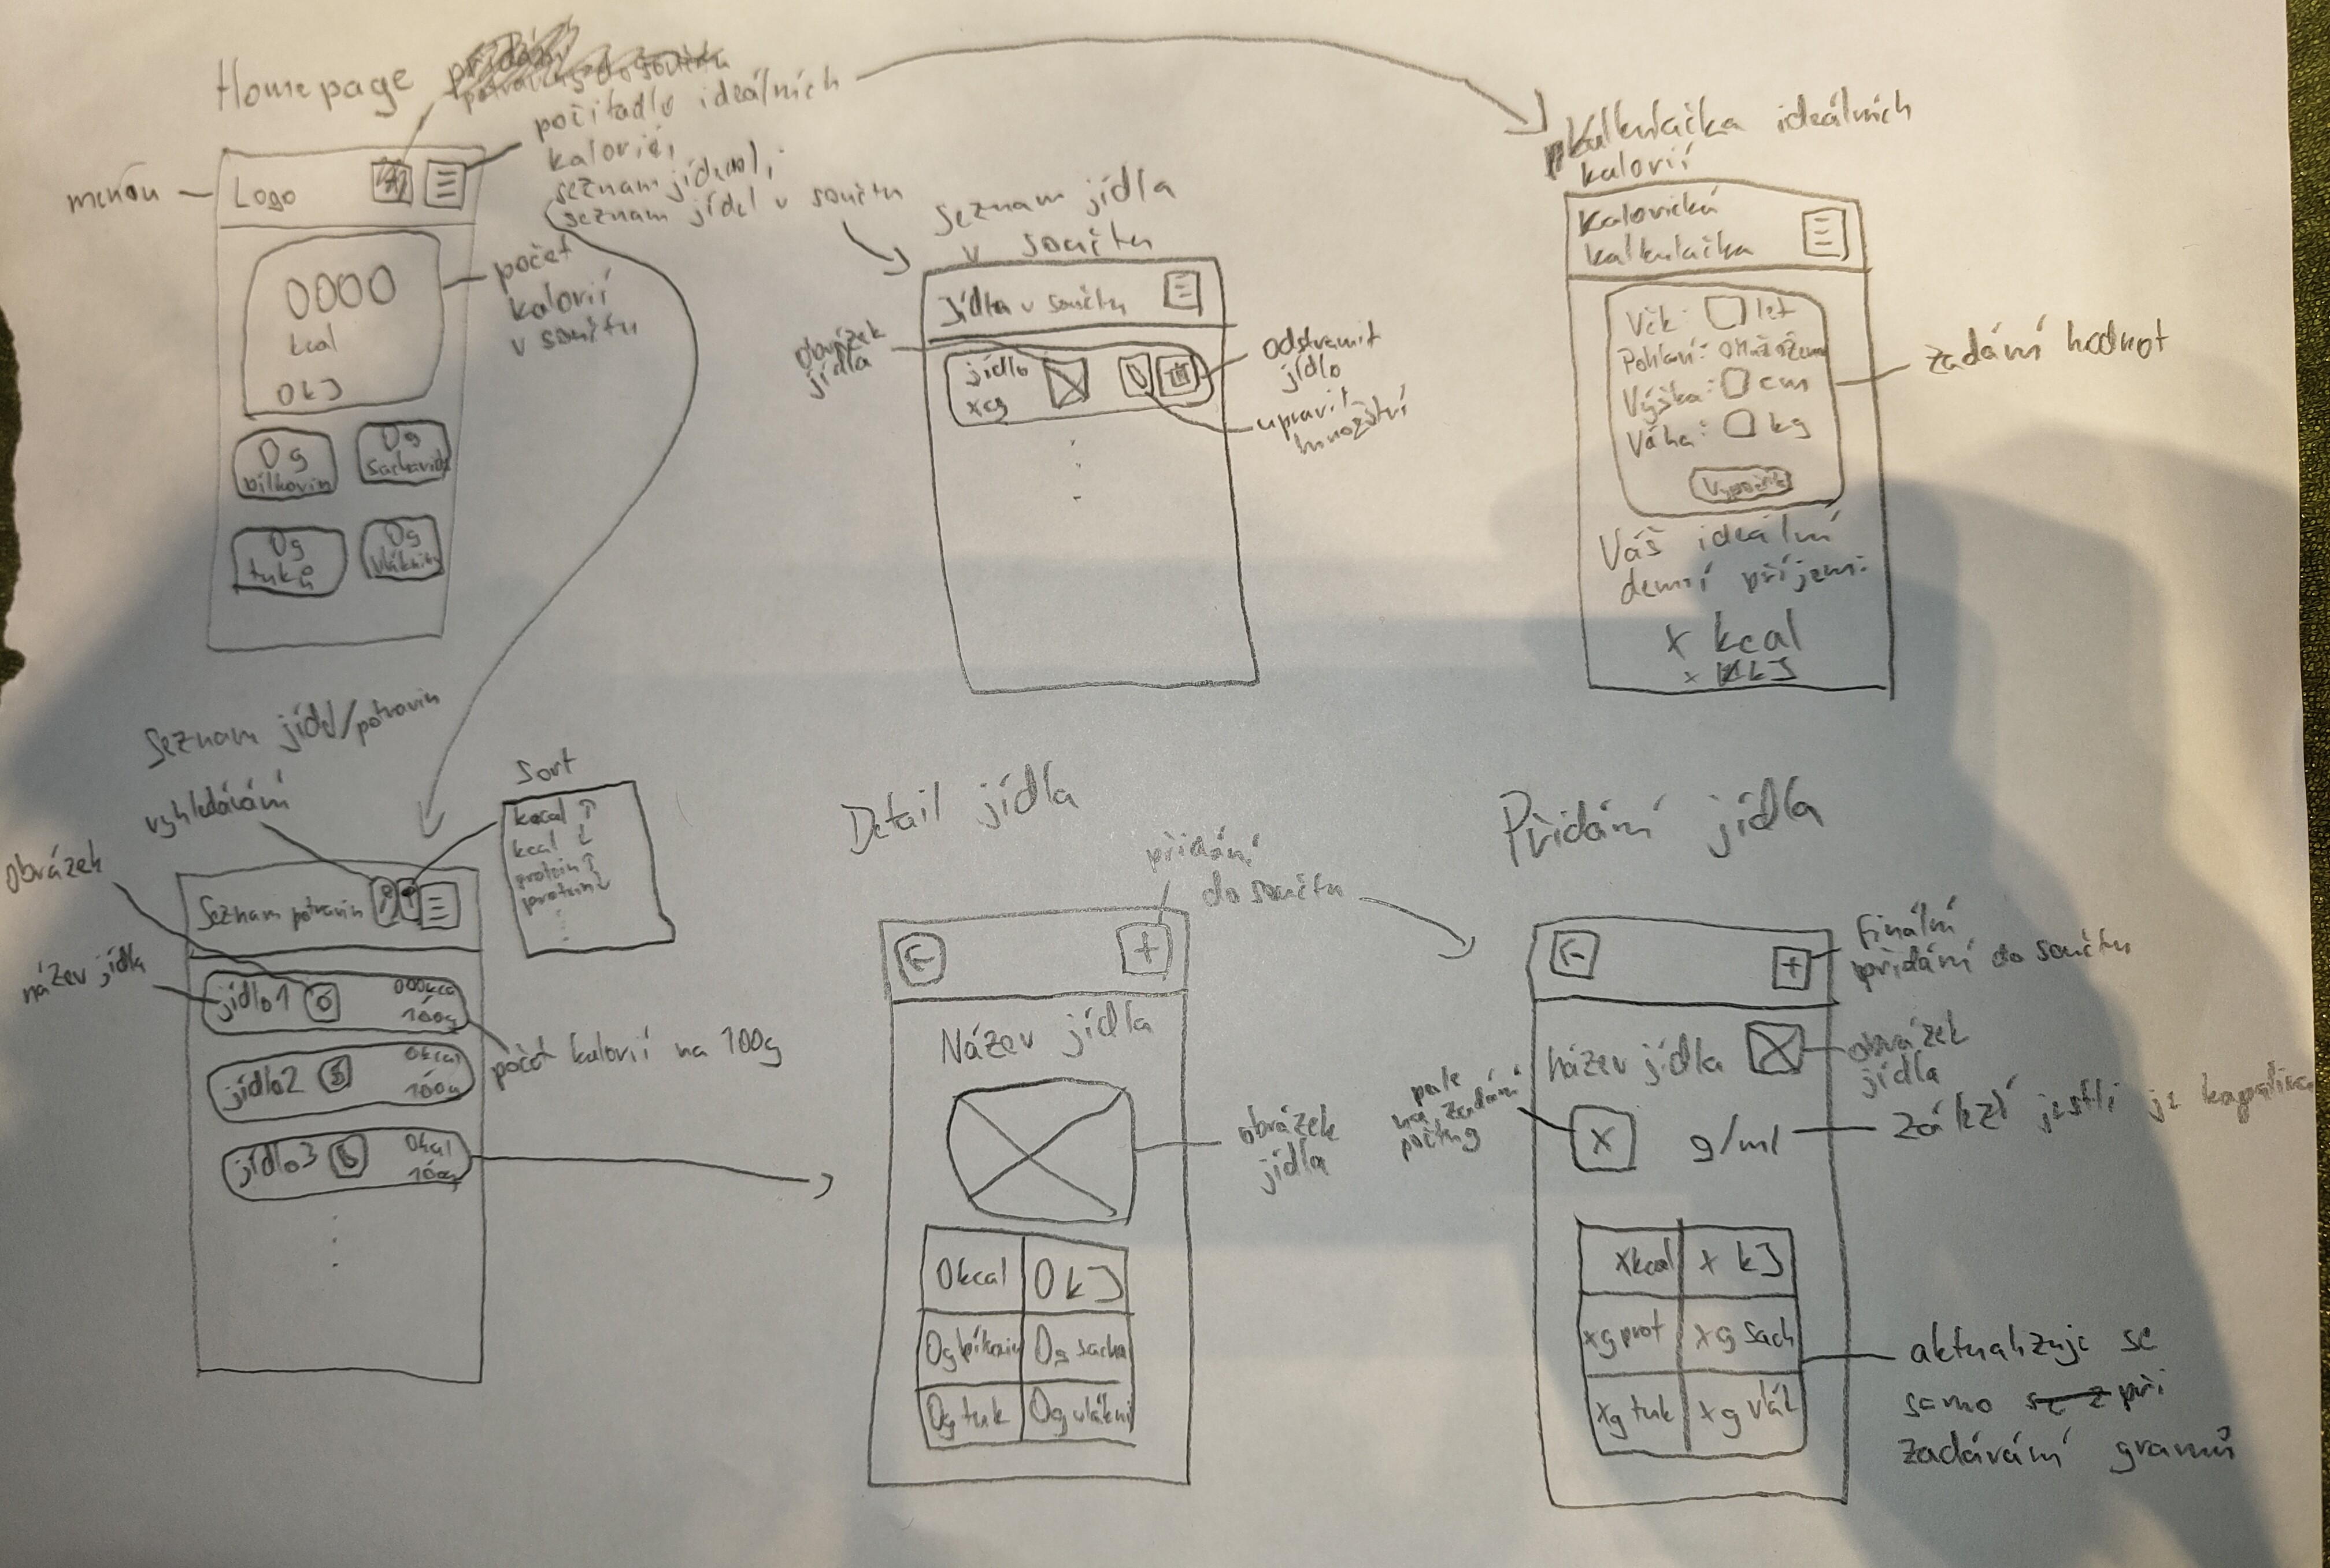 Homepage
počítadlo ideálních
kalorií
seznam jídel
seznam jídel v součtu
menu
Logo
0000
kcal
0 kJ
počet
kalorií
v součtu
0g
bílkovin
0g
sacharid
0g
tuků
0g
vláknin
seznam jídla
v součtu
Jídla v součtu
obrázek
jídla
jídlo
xg
odstranit
jídlo
upravit
množství
Kalkulačka ideálních
kalorií
Kalorická
kalkulačka
Věk: let
Pohlaví:
Výška: cm
Váha: kg
zadání hodnot
Váš ideální
denní příjem:
x kcal
x kJ
Seznam jídel/potravin
vyhledávání
obrázek
název jídla
Sort
kcal ↑
kcal ↓
protein ↑
protein ↓
Seznam potravin
jídlo1
000kcal
100g
jídlo2
0kcal
100g
jídlo3
0kcal
100g
počet kalorií na 100g
Detail jídla
přidání
do součtu
+
Název jídla
obrázek
jídla
0kcal 0 kJ
0g bílkovin 0g sacha
0g tuk 0g vlákni
Přidání jídla
+
finální
přidání do součtu
název jídla
obrázek
jídla
pole
na zadání
počtu g
x g/ml
záleží jestli je kapalina
xkcal x kJ
xg prot xg sach
xg tuk xg vlák
aktualizuje se
samo se z při
zadávání gramů